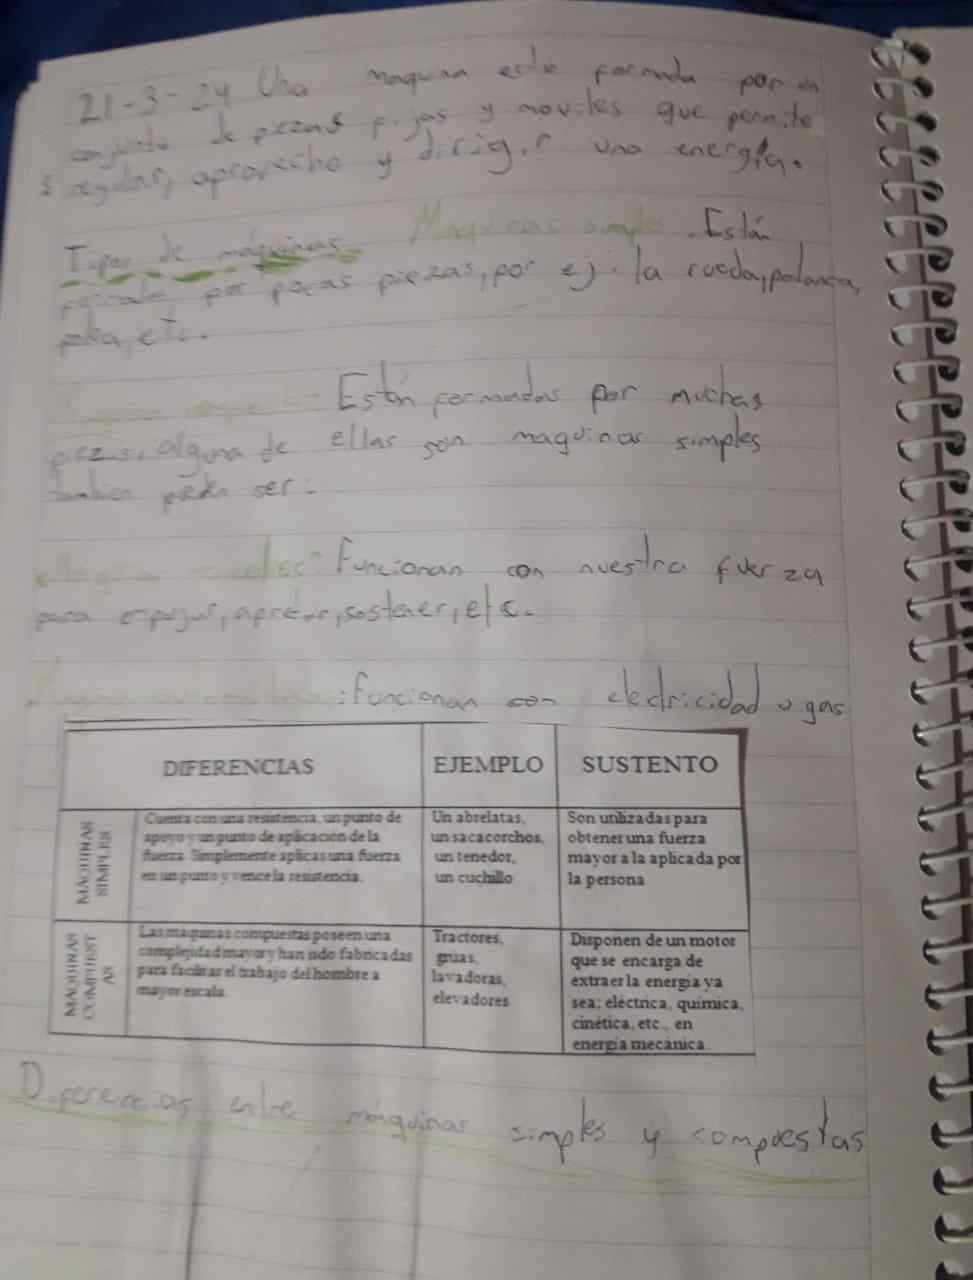 21-3-24 Una maquina esta formada por un
conjunto de piezas fijas y moviles que permite
regular, aprovecho y dirigir una energía.
Tipos de máquinas Maquinas simple. Están
formadas por pocas piezas, por ej: la rueda, palanca,
polea, etc.
Están formadas por muchas
piezas, alguna de ellas son maquinas simples
tambien pueden ser:
Funcionan con nuestra fuerza
para empujar, apretar, sostener, etc.
: funcionan con electricidad o gas
DIFERENCIAS EJEMPLO SUSTENTO
MÁQUINAS
SIMPLES
Cuenta con una resistencia, un punto de
apoyo y un punto de aplicación de la
fuerza. Simplemente aplicas una fuerza
en un punto y vence la resistencia.
Un abrelatas,
un sacacorchos,
un tenedor,
un cuchillo
Son utilizadas para
obtener una fuerza
mayor a la aplicada por
la persona
MÁQUINAS
COMPUEST
AS
Las máquinas compuestas poseen una
complejidad mayor y han sido fabricadas
para facilitar el trabajo del hombre a
mayor escala.
Tractores,
grúas,
lavadoras,
elevadores
Disponen de un motor
que se encarga de
extraer la energía ya
sea; eléctrica, química,
cinética, etc., en
energía mecánica.
Diferencias entre máquinas simples y compuestas